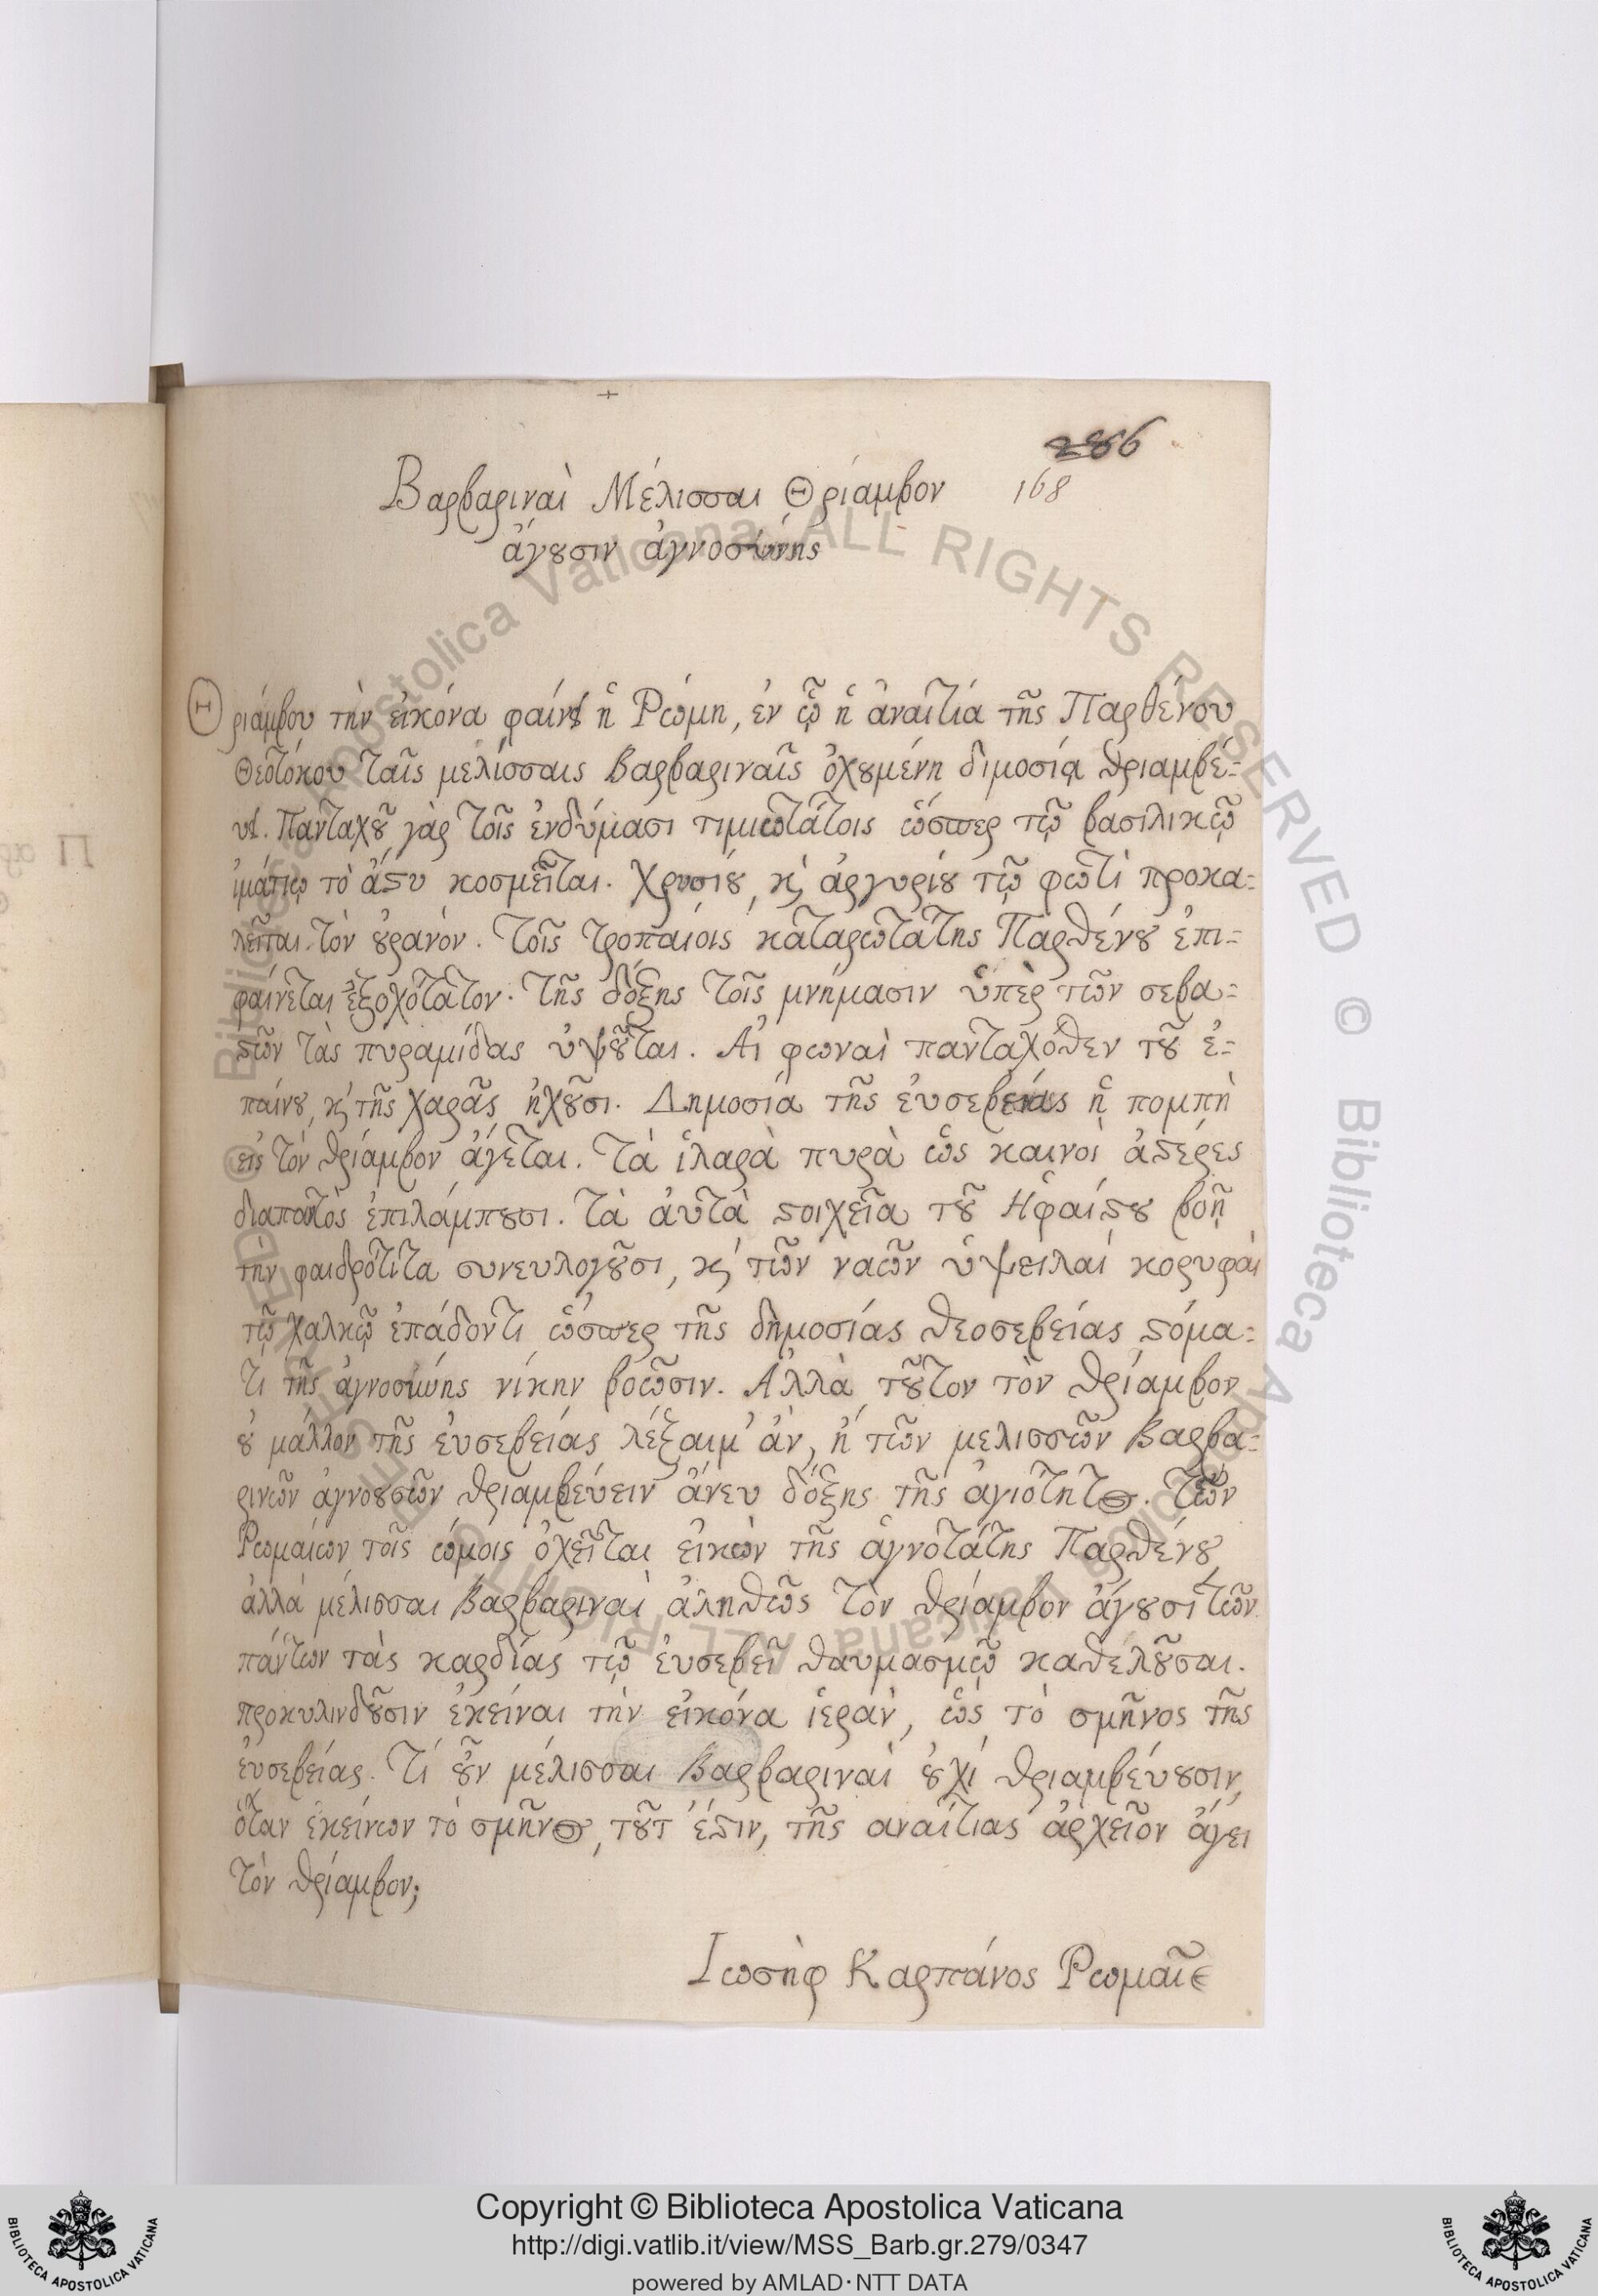 286
168
Βαρβαριναὶ Μέλισσαι Θρίαμβον
ἄγουσιν ἁγνοσύνης
Θριάμβου τὴν εἰκόνα φαίνει ἡ Ῥώμη, ἐν ᾧ ἡ ἀναιτία τῆς Παρθένου
Θεοτόκου ταῖς μελίσσαις Βαρβαριναῖς ὀχουμένη διμοσίᾳ θριαμβέ-
υει. Πανταχοῦ γὰρ τοῖς ἐνδύμασι τιμιωτάτοις ὥσπερ τῷ βασιλικῷ
ἱμάτιῳ τὸ ἄστυ κοσμεῖται. Χρυσίου, κὶ ἀργυρίου τῷ φωτὶ προκα-
λεῖται τὸν οὐρανόν. Τοῖς τροπαίοις καταρωτάτης Παρθένου ἐπι-
φαίνεται ἐξοχότατον. Τῆς δόξης τοῖς μνήμασιν ὑπὲρ τῶν σεβα-
στῶν τὰς πυραμίδας ὑψοῦται. Αἱ φωναὶ πανταχόθεν τοῦ ἐ-
παίνου, κὶ τῆς χαρᾶς ἠχοῦσι. Δημοσία τῆς ἐυσεβείας ἡ πομπὴ
εἰς τὸν θρίαμβον ἄγεται. Τὰ ἱλαρὰ πυρὰ ὡς καινοὶ ἀστέρες
διαπαντὸς ἐπιλάμπουσι. Τὰ ἀυτὰ στοιχεῖα τοῦ Ηφαίστου βοῇ
τὴν φαιδρότιτα συνευλογοῦσι, κὶ τῶν ναῶν ὑψειλαί κορυφὰι
τῷ χαλκῷ ἐπάδοντι ὥσπερ τῆς δημοσίας θεοσεβείας στόμα-
τι τῆς ἁγνοσύνης νίκην βοῶσιν. Ἀλλὰ τοῦτον τὸν θρίαμβον
οὐ μᾶλλον τῆς ἐυσεβείας λέξαιμ' ἀν, ἢ τῶν μελισσῶν Βαρβα-
ρινῶν ἁγνουσῶν θριαμβέυειν ἄνευ δόξης τῆς ἁγιότητος. Τῶν
Ῥωμαίων τοῖς ώμοις ὀχεῖται εἰκὼν τῆς ἁγνοτάτης Παρθένου,
ἀλλὰ μέλισσαι Βαρβαριναὶ ἀληθῶς τὸν θρίαμβον ἄγουσι τῶν
πάντων τὰς καρδίας τῷ ἐυσεβεῖ θαυμασμῷ καθελοῦσαι.
προκυλινδοῦσιν ἐκείναι τὴν εἰκόνα ἱερὰν, ὡς τὸ σμῆνος τῆς
ἐυσεβείας. Τί οὖν μέλισσαι Βαρβαριναὶ οὐχὶ θριαμβέυουσιν,
ὅταν ἐκείνων τὸ σμῆνος, τοῦτ' έστιν, τῆς αναιτίας ἀρχεῖον ἄγει
τὸν θρίαμβον;
Ιωσὴφ Καρπάνος Ῥωμαῖος
Copyright © Biblioteca Apostolica Vaticana
http://digi.vatlib.it/view/MSS_Barb.gr.279/0347
powered by AMLAD·NTT DATA